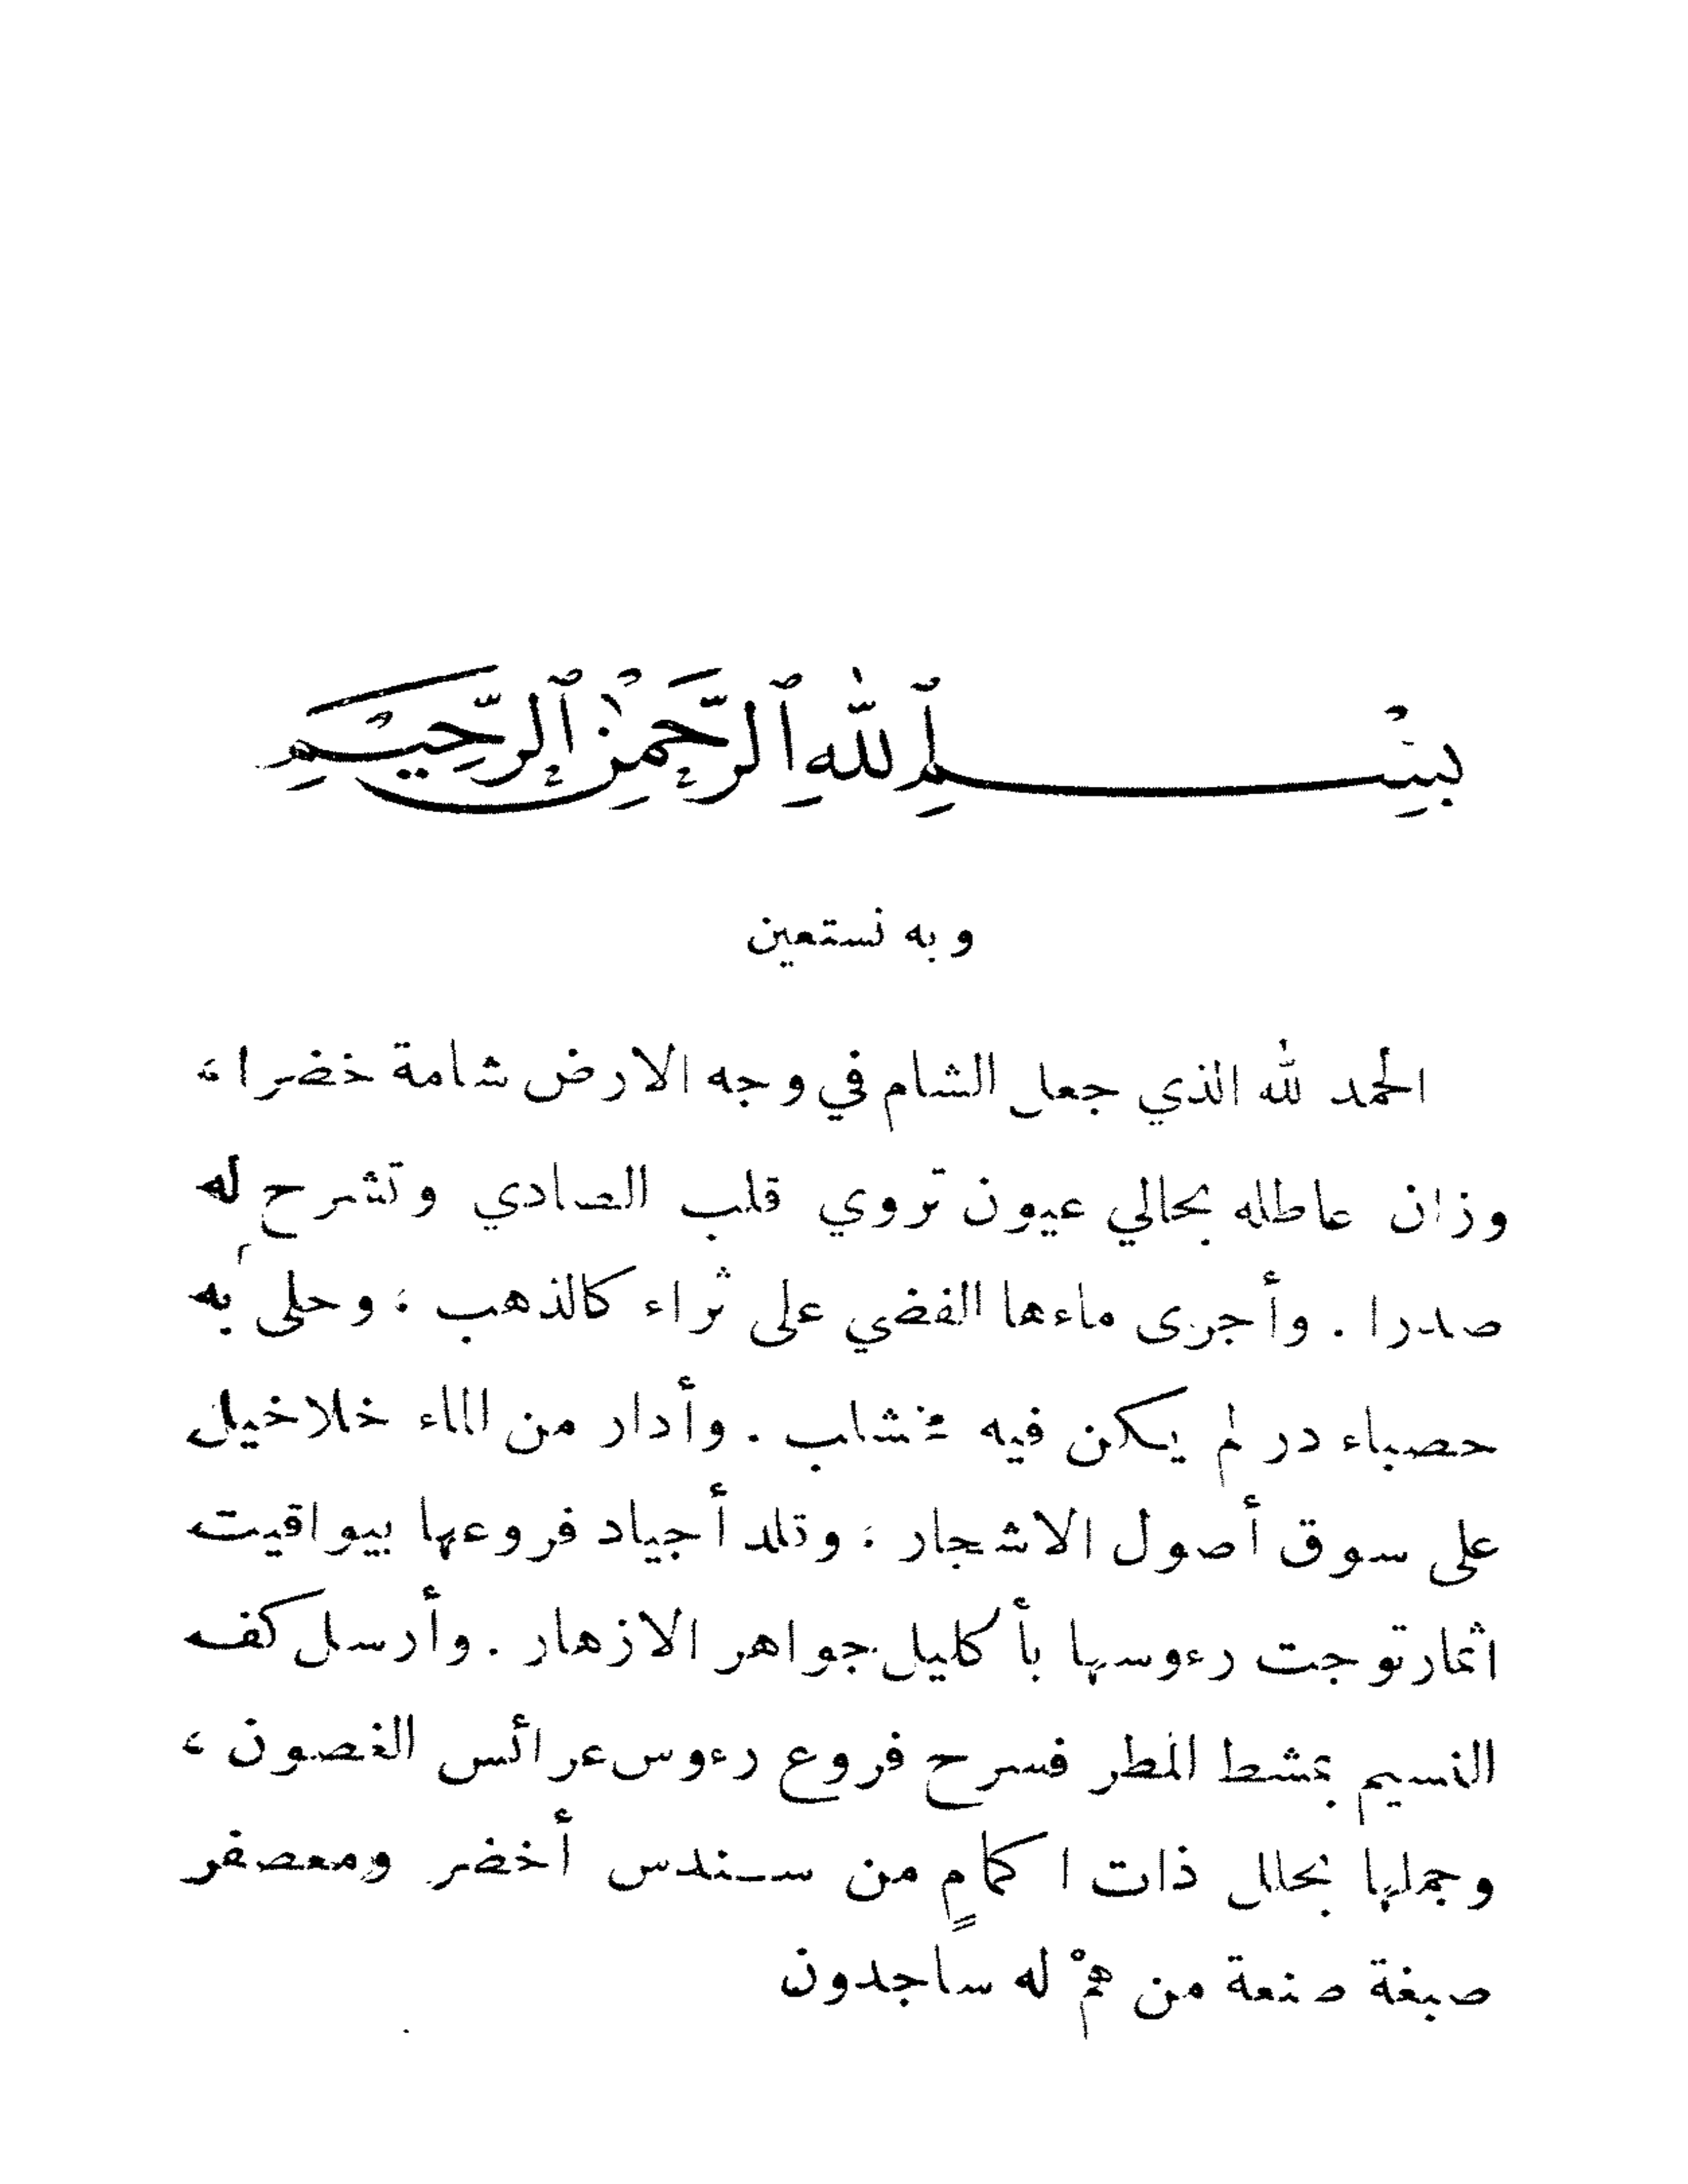 بِسْمِ ٱللّٰهِ ٱلرَّحْمٰنِ ٱلرَّحِيمِ
وبه نستعين
الحمد لله الذي جعل الشام في وجه الارض شامة خضراء،
وزان عاطله بحالي عيون تروي قلب الصادي وتشرح له
صدرا . وأجرى ماءها الفضي على ثراء كالذهب ، وحلى به
حصباء در لم يكن فيه مخشلب . وأدار من الماء خلاخيل
على سوق أصول الاشجار ، وتلد أجياد فروعها بيواقيت
اثمار توجت رءوسها بأكليل جواهر الازهار . وأرسل كف
النسيم بمشط المطر فسرح فروع رءوس عرائس الغصون ،
وجملها بحلل ذات اكمامٍ من سندس أخضر ومعصفر
صبغة صنعة من همْ له ساجدون